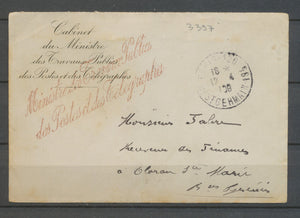 3397
Cabinet
du Ministre
des Travaux Publics
des Postes et des Télégraphes
Ministère Publics
des Postes et des Télégraphes
16
4
09
Monsieur Fabre
Receveur des Finances
à Oloron Ste Marie